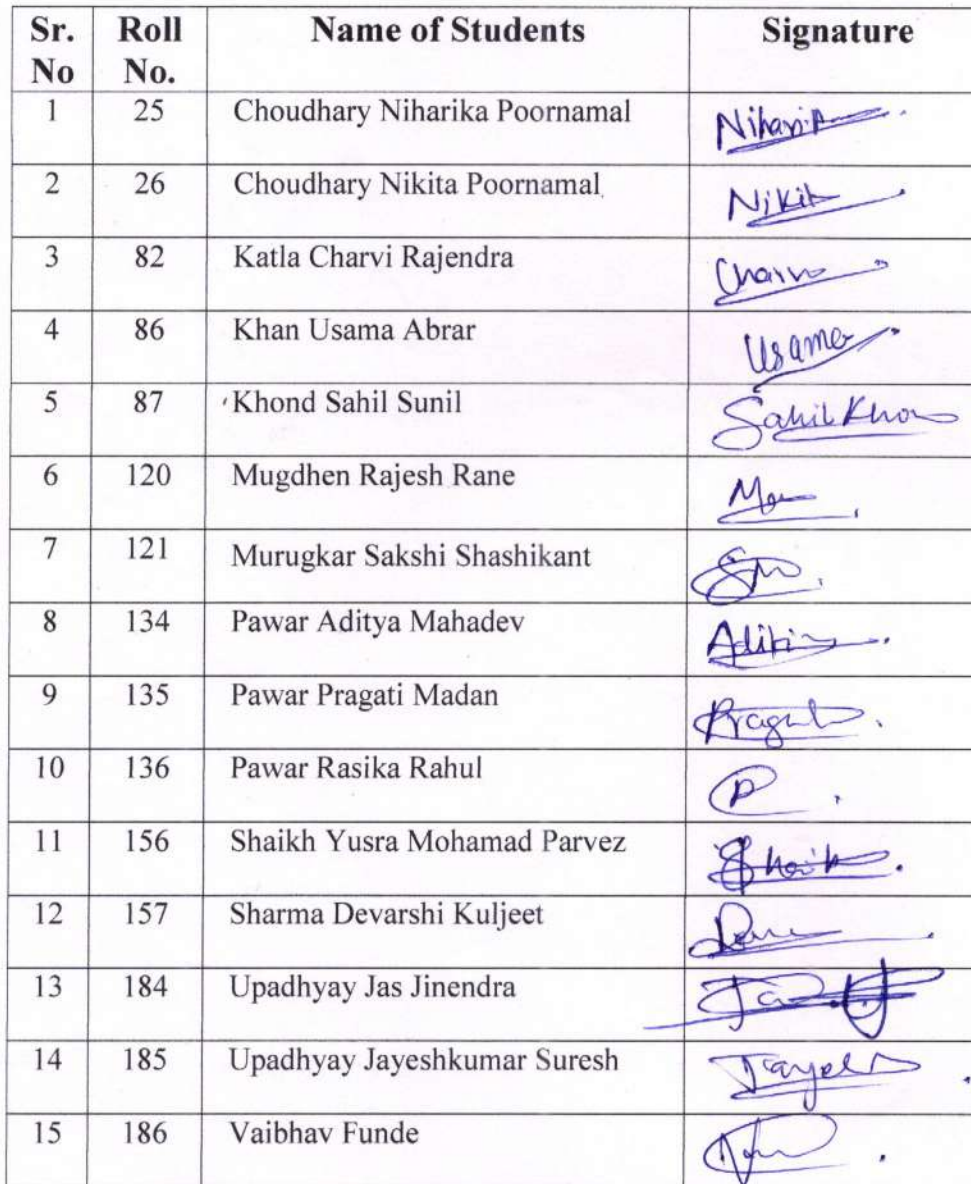 Sr. No Roll No. Name of Students Signature
1 25 Choudhary Niharika Poornamal
2 26 Choudhary Nikita Poornamal
3 82 Katla Charvi Rajendra
4 86 Khan Usama Abrar Usama
5 87 Khond Sahil Sunil Sahil
6 120 Mugdhen Rajesh Rane
7 121 Murugkar Sakshi Shashikant
8 134 Pawar Aditya Mahadev
9 135 Pawar Pragati Madan
10 136 Pawar Rasika Rahul
11 156 Shaikh Yusra Mohamad Parvez
12 157 Sharma Devarshi Kuljeet
13 184 Upadhyay Jas Jinendra
14 185 Upadhyay Jayeshkumar Suresh
15 186 Vaibhav Funde